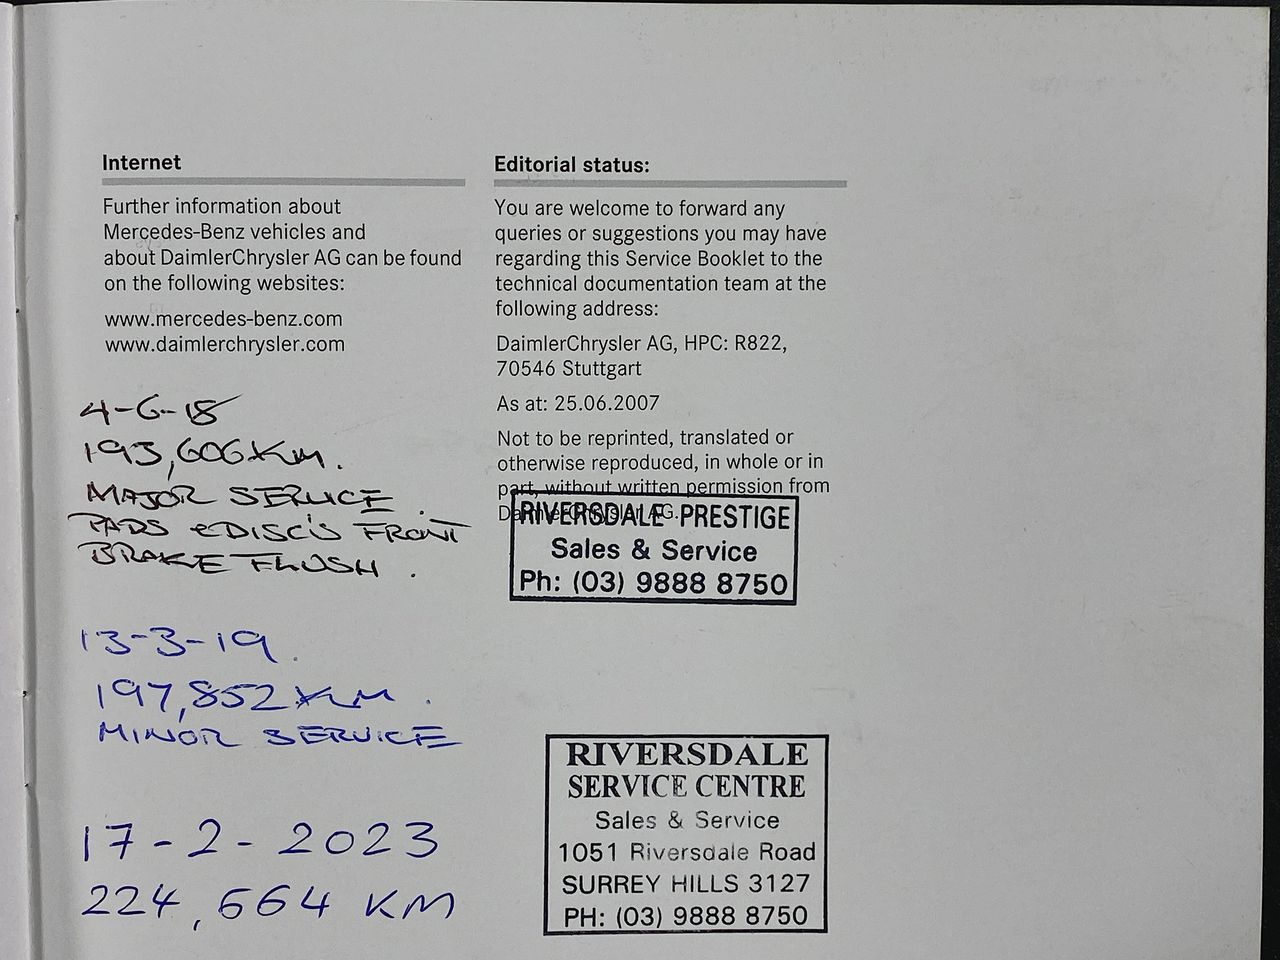 Internet
Further information about
Mercedes-Benz vehicles and
about DaimlerChrysler AG can be found
on the following websites:
www.mercedes-benz.com
www.daimlerchrysler.com
Editorial status:
You are welcome to forward any
queries or suggestions you may have
regarding this Service Booklet to the
technical documentation team at the
following address:
DaimlerChrysler AG, HPC: R822,
70546 Stuttgart
As at: 25.06.2007
Not to be reprinted, translated or
otherwise reproduced, in whole or in
part, without written permission from
DaimlerChrysler AG.
4-6-18
193,606 KM.
MAJOR SERVICE.
PADS & DISC'S FRONT
BRAKE FLUSH.
RIVERSDALE PRESTIGE
Sales & Service
Ph: (03) 9888 8750
13-3-19.
197,852 KM.
MINOR SERVICE
17-2-2023
224,664 KM
RIVERSDALE
SERVICE CENTRE
Sales & Service
1051 Riversdale Road
SURREY HILLS 3127
PH: (03) 9888 8750